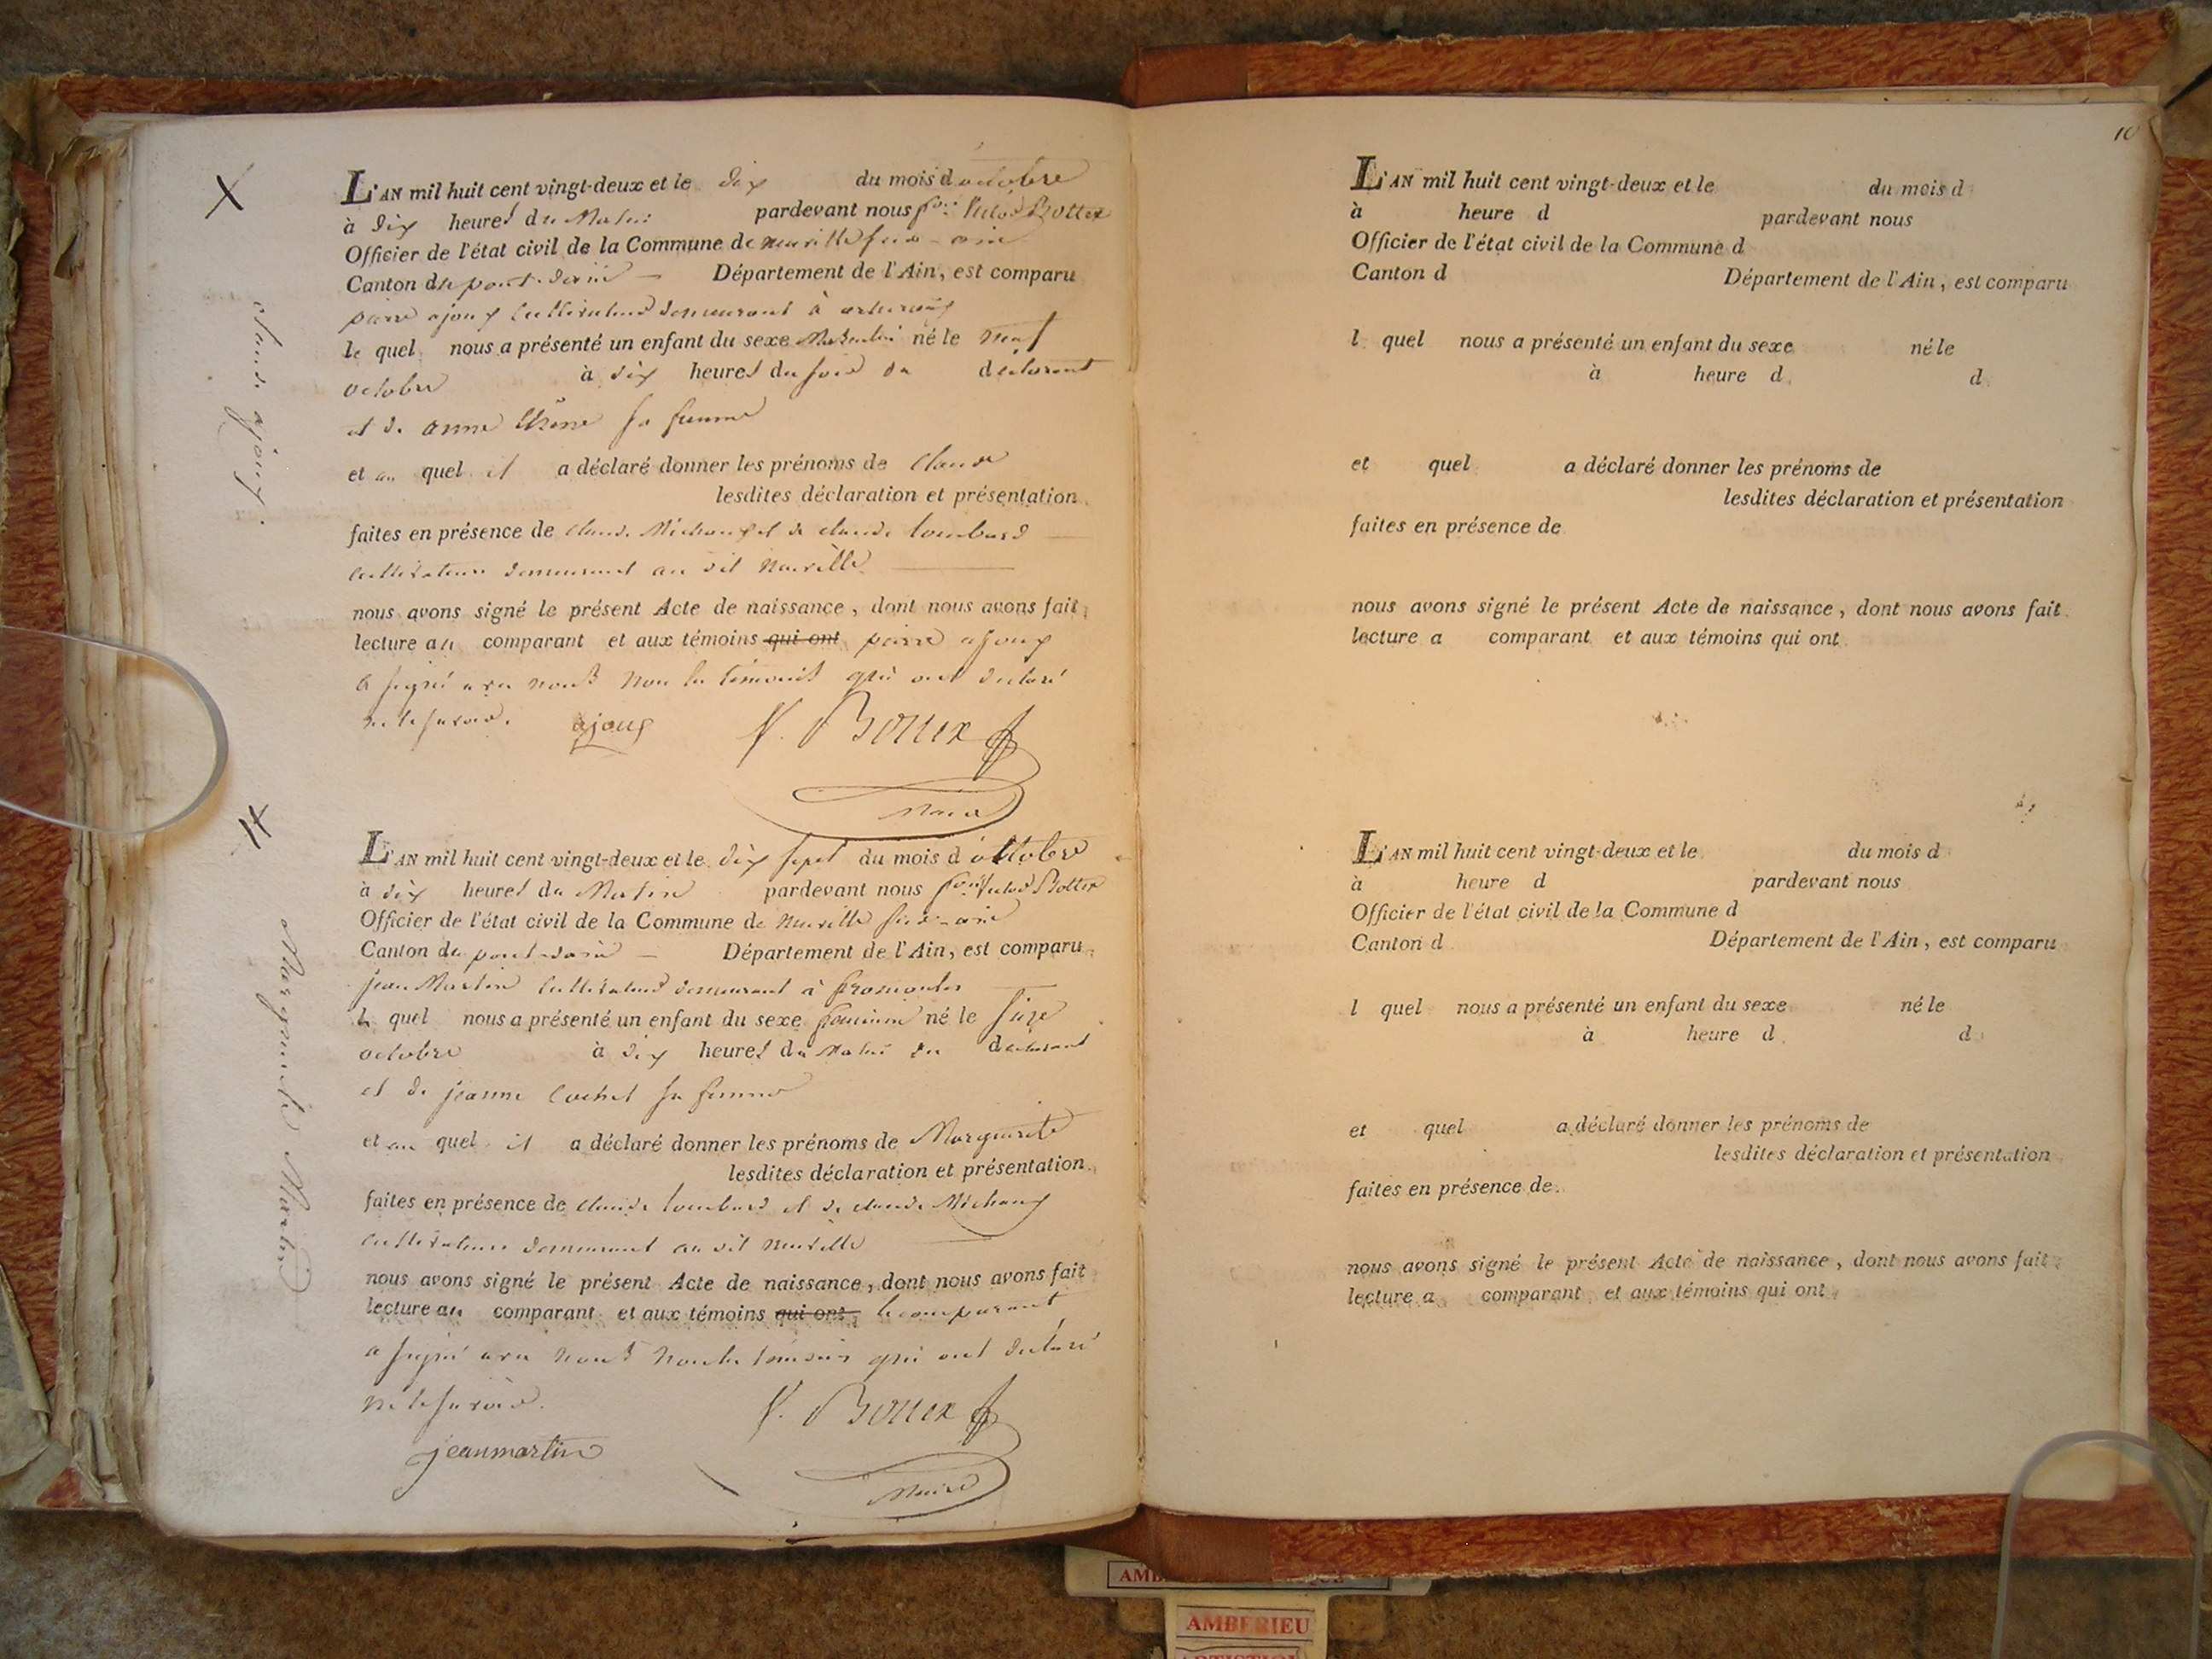 L'AN mil huit cent vingt-deux et le dix du mois d octobre
à dix heures du Matin pardevant nous f.ois Victor Bottex
Officier de l'état civil de la Commune de neuville sur-ain
Canton de pont-dain Département de l'Ain, est comparu
pierre ajoux cultivateur demeurant à
le quel nous a présenté un enfant du sexe Masculin né le neuf
octobre à dix heures du soir du declarant
et de anne sa femme
et au quel il a déclaré donner les prénoms de Claude
lesdites déclaration et présentation
faites en présence de claude Michoux et de claude Lombard
cultivateurs demeurant au dit neuville
nous avons signé le présent Acte de naissance, dont nous avons fait
lecture au comparant et aux témoins qui ont pierre ajoux
a signé avec nous non les témoins qui ont declaré
ne le savoir. ajoux V. Bottex
Maire
claude ajoux.
L'AN mil huit cent vingt-deux et le dix sept du mois d'octobre
à dix heures du Matin pardevant nous f.ois Victor Bottex
Officier de l'état civil de la Commune de Neuville sur-ain
Canton de pont-dain Département de l'Ain, est comparu
jean Martin cultivateur demeurant à fromentes
le quel nous a présenté un enfant du sexe feminin né le seize
octobre à dix heures du matin du declarant
et de jeanne Cochet sa femme
et au quel il a déclaré donner les prénoms de Marguerite
lesdites déclaration et présentation
faites en présence de claude Lombard et de claude Michoux
cultivateurs demeurant au dit neuville
nous avons signé le présent Acte de naissance, dont nous avons fait
lecture au comparant et aux témoins qui ont, le comparant
a signé avec nous non les témoins qui ont declaré
ne le savoir. V. Bottex
jeanmartin Maire
Marguerite Martin
10
L'AN mil huit cent vingt-deux et le du mois d
à heure d pardevant nous
Officier de l'état civil de la Commune d
Canton d Département de l'Ain, est comparu
l quel nous a présenté un enfant du sexe né le
à heure d d
et quel a déclaré donner les prénoms de
lesdites déclaration et présentation
faites en présence de
nous avons signé le présent Acte de naissance, dont nous avons fait
lecture a comparant et aux témoins qui ont
L'AN mil huit cent vingt-deux et le du mois d
à heure d pardevant nous
Officier de l'état civil de la Commune d
Canton d Département de l'Ain, est comparu
l quel nous a présenté un enfant du sexe né le
à heure d d
et quel a déclaré donner les prénoms de
lesdites déclaration et présentation
faites en présence de
nous avons signé le présent Acte de naissance, dont nous avons fait
lecture a comparant et aux témoins qui ont
AMBERIEU